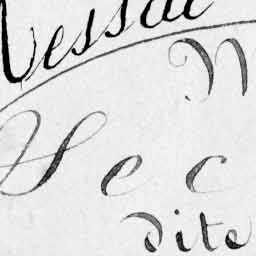 Nessac
N
Sec
dite